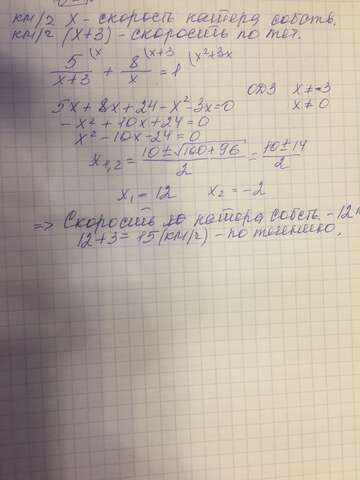 км/ч x - скорость катера собств.
км/ч (x+3) - скорость по теч.
5/(x+3) (x + 8/x (x+3 = 1 (x²+3x
5x + 8x + 24 - x² - 3x = 0 ОДЗ x ≠ -3
-x² + 10x + 24 = 0 x ≠ 0
x² - 10x - 24 = 0
x₁,₂ = (10 ± √100 + 96)/2 = (10 ± 14)/2
x₁ = 12 x₂ = -2
=> Скорость катера собств. - 12 к
12 + 3 = 15 (км/ч) - по течению.